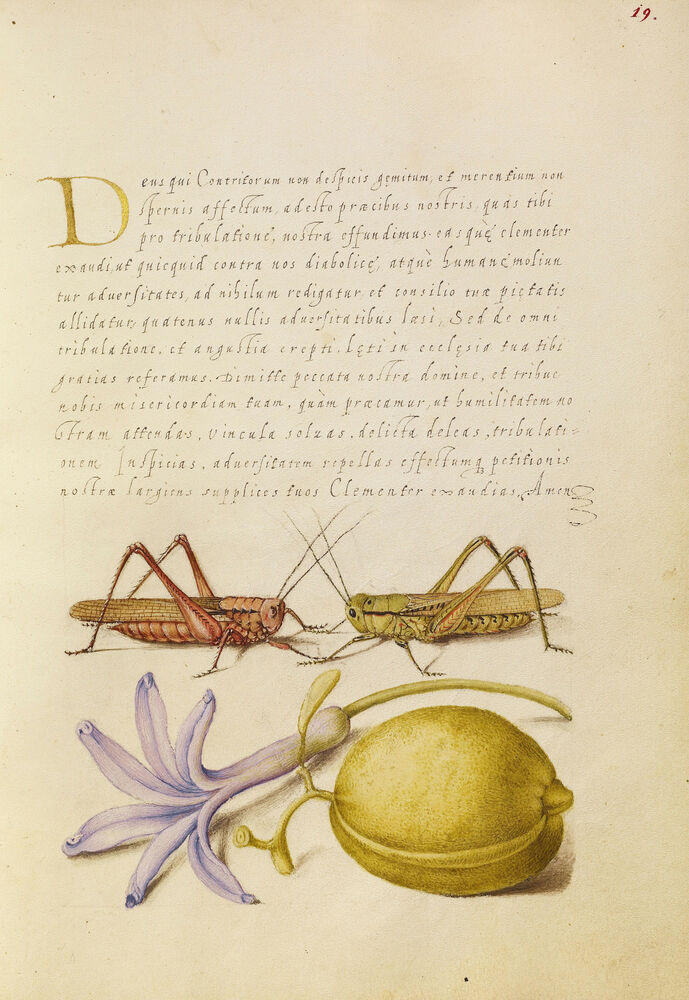 19.
Deus qui Contritorum non despicis gemitum, et merentium non
spernis affectum, adesto præcibus nostris, quas tibi
pro tribulatione, nostra effundimus. easquè clementer
exaudi, ut quicquid contra nos diabolicę, atquè humanę moliun
tur aduersitates, ad nihilum redigatur, et consilio tuæ pietatis
allidatur, quatenus nullis aduersitatibus læsi, Sed de omni
tribulatione, et angustia erepti, lęti in ecclęsia tua tibi
gratias referamus. Dimitte peccata nostra domine, et tribue
nobis misericordiam tuam, quàm præcamur, ut humilitatem no
stram attendas, vincula soluas, delicta deleas, tribulati=
onem Inspicias, aduersitatem repellas effectumq petitionis
nostræ largiens supplices tuos Clementer exaudias, Amen